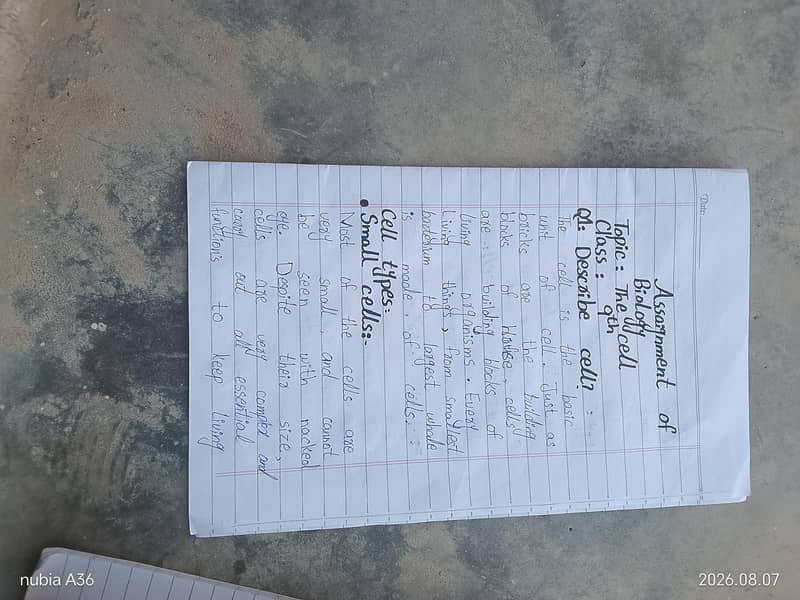 Date:
Assignment of
Biology
Topic: The cell
Class: 9th
Q1: Describe cell?
The cell is the basic
unit of cell. Just as
bricks are the building
blocks of house, cells
are building blocks of
living organisms. Every
living things, from smallest
to largest whale
is made of cells.
Cell types:
• Small cells:-
Most of the cells are
very small and cannot
be seen with nacked
eye. Despite their size,
cells are very complex and
carry out all essential
functions to keep living
nubia A36
2026.08.07